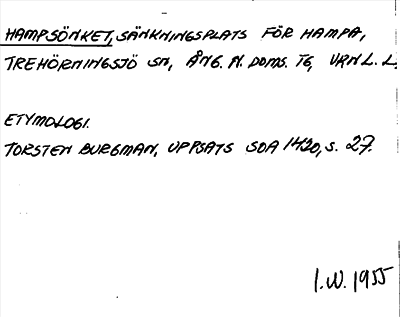 HAMPSÖNKET, SÄNKNINGSPLATS FÖR HAMPA,
TREHÖRNINGSJÖ SN, ÅNG. N. DOMS. TG, VRN L. L.
ETYMOLOGI.
TORSTEN BURGMAN, UPPSATS SOA 1420, S. 27.
I.W. 1955